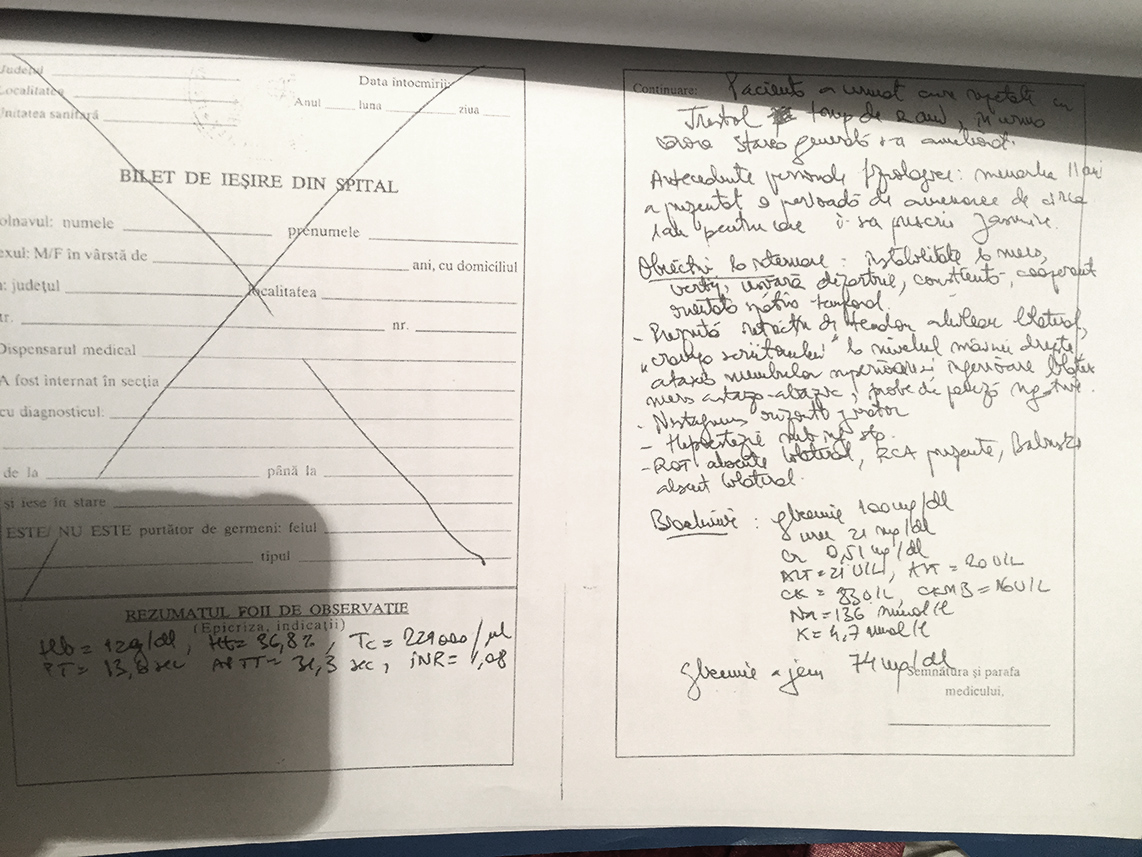 Județul
Localitatea
Unitatea sanitară
Data întocmirii:
Anul luna ziua
BILET DE IEȘIRE DIN SPITAL
olnavul: numele prenumele
exul: M/F în vârstă de ani, cu domiciliul
: județul localitatea
tr. nr.
Dispensarul medical
A fost internat în secția
cu diagnosticul:
de la până la
și iese în stare
ESTE/ NU ESTE purtător de germeni: felul
tipul
REZUMATUL FOII DE OBSERVAȚIE
(Epicriza, indicații)
Hb = 12g/dl, Ht= 36,8%, Tc = 229000/µl
PT = 13,8 sec APTT = 31,3 sec, INR= 1,08
Continuare: Pacienta a urmat cure repetate cu
timp de 2 ani, în urma
starea generală s-a ameliorat.
Antecedente personale fiziologice: menarha 11 ani
a prezentat o perioadă de amenoree de circa
1 an pentru care i s-a prescris Jasmine.
Obiectiv la internare: instabilitate la mers,
vertij, ușoară dizartrie, conștientă, cooperant
orientată
- Prezintă de tendon ahilean bilateral,
"crampa scriitorului" la nivelul mâinii drepte,
ataxia membrelor superioare și inferioare bilat
mers, probe de pareză negative.
- Nistagmus orizonto girator
- Hipoestezie
- ROT absente bilateral, RCA prezente, Babinski
absent bilateral.
Biochimie: glicemie 100 mg/dl
uree 21 mg/dl
Cr 0,51 mg/dl
ALT = 21 U/L, AST = 20 U/L
CK = 83 U/L, CKMB = 16 U/L
Na = 136 mmol/l
K = 4,7 mmol/l
glicemie a jeun 74 mg/dl
Semnătura și parafa
medicului,